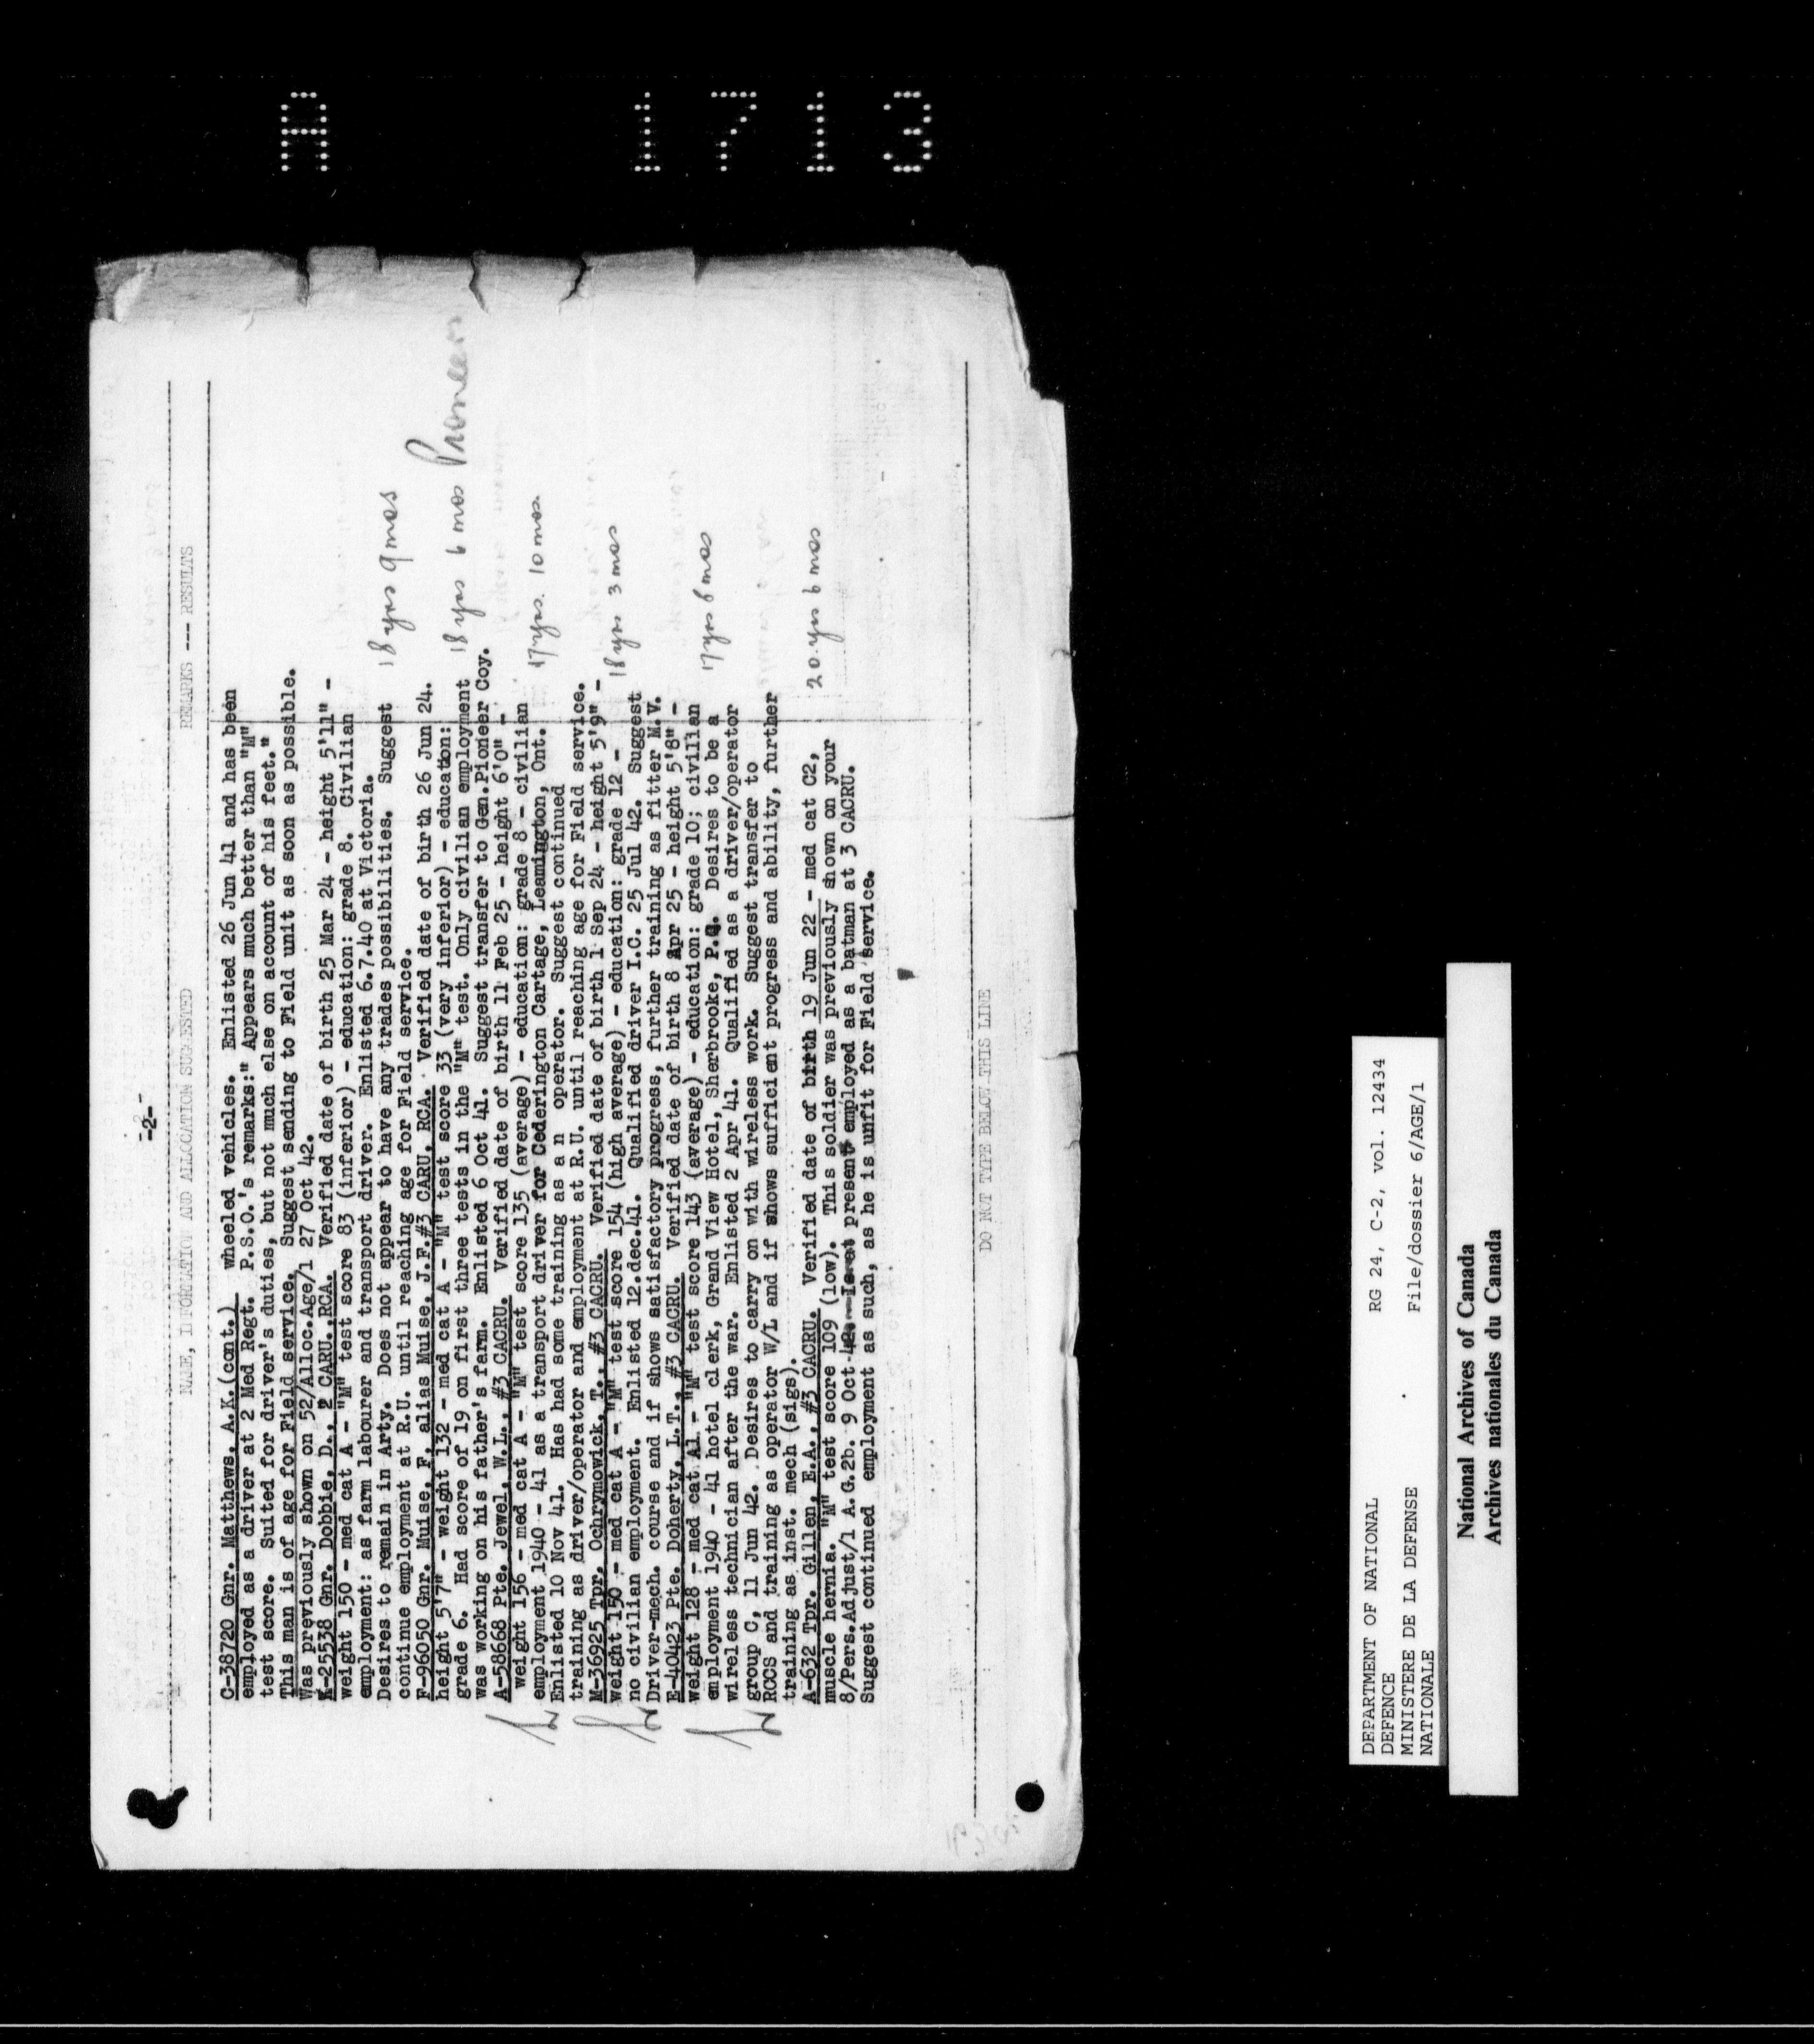 A 1713
-2-
NAME, INFORMATION AND ALLOCATION SUGGESTED REMARKS --- RESULTS
C-38720 Gnr. Matthews, A.K.(cont.) wheeled vehicles. Enlisted 26 Jun 41 and has been
employed as a driver at 2 Med Regt. P.S.O.'s remarks:" Appears much better than "M"
test score. Suited for driver's duties, but not much else on account of his feet."
This man is of age for Field service. Suggest sending to Field unit as soon as possible.
Was previously shown on 52/Alloc.Age/1 27 Oct 42.
K-25538 Gnr. Dobbie, D., 2 CARU.,RCA. Verified date of birth 25 Mar 24 - height 5'11" -
weight 150 - med cat A - "M" test score 83 (inferior) - education: grade 8. Civilian
employment: as farm labourer and transport driver. Enlisted 6.7.40 at Victoria.
Desires to remain in Arty. Does not appear to have any trades possibilities. Suggest
continue employment at R.U. until reaching age for Field service.
18 yrs 9 mos
F-96050 Gnr. Muise, F, alias Muise, J.F.#3 CARU, RCA. Verified date of birth 26 Jun 24.
height 5'7" - weight 132 - med cat A - "M" test score 33 (very inferior) - education:
grade 6. Had score of 19 on first three tests in the "M" test. Only civilian employment
was working on his father's farm. Enlisted 6 Oct 41. Suggest transfer to Gen.Pioneer Coy.
18 yrs 6 mos Pioneer
A-58668 Pte. Jewel, W.L., #3 CACRU. Verified date of birth 11 Feb 25 - height 6'0" -
weight 156 - med cat A - "M" test score 135 (average) - education: grade 8 - civilian
employment 1940 - 41 as a transport driver for Cederington Cartage, Leamington, Ont.
Enlisted 10 Nov 41. Has had some training as a n operator. Suggest continued
training as driver/operator and employment at R.U. until reaching age for Field service.
17 yrs. 10 mos.
M-36925 Tpr. Ochrymowick, T., #3 CACRU. Verified date of birth 1 Sep 24 - height 5'9" -
weight 150 - med cat A - "M" test score 154 (high average) - education: grade 12 -
no civilian employment. Enlisted 12.dec.41. Qualified driver I.C. 25 Jul 42. Suggest
Driver-mech. course and if shows satisfactory progress, further training as fitter M.V.
18 yrs 3 mos
E-40423 Pte. Doherty, L.T., #3 CACRU. Verified date of birth 8 Apr 25 - height 5'8" -
weight 128 - med cat A1 - "M" test score 143 (average) - education: grade 10; civilian
employment 1940 - 41 hotel clerk, Grand View Hotel, Sherbrooke, P.Q. Desires to be a
wireless technician after the war. Enlisted 2 Apr 41. Qualified as a driver/operator
group C, 11 Jun 42. Desires to carry on with wireless work. Suggest transfer to
RCCS and training as operator W/L and if shows sufficient progress and ability, further
training as inst. mech (sigs).
17 yrs 8 mos
A-632 Tpr. Gillen, E.A., #3 CACRU. Verified date of birth 19 Jun 22 - med cat C2,
muscle hernia. "M" test score 109 (low). This soldier was previously shown on your
8/Pers.Adjust/1 A.G.2b. 9 Oct 42. Is at present employed as a batman at 3 CACRU.
Suggest continued employment as such, as he is unfit for Field service.
20 yrs 6 mos
DO NOT TYPE BELOW THIS LINE
DEPARTMENT OF NATIONAL RG 24, C-2, vol. 12434
DEFENCE
MINISTERE DE LA DEFENSE File/dossier 6/AGE/1
NATIONALE
National Archives of Canada
Archives nationales du Canada